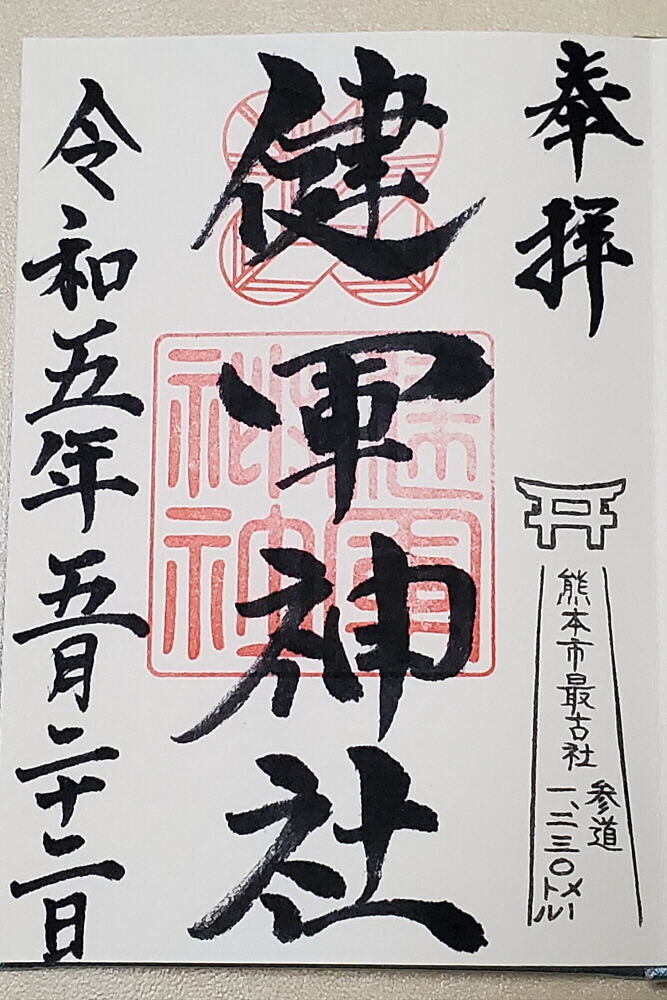 奉拝
熊本市最古社
参道
一、二三〇メートル
健軍神社
令和五年五月二十二日